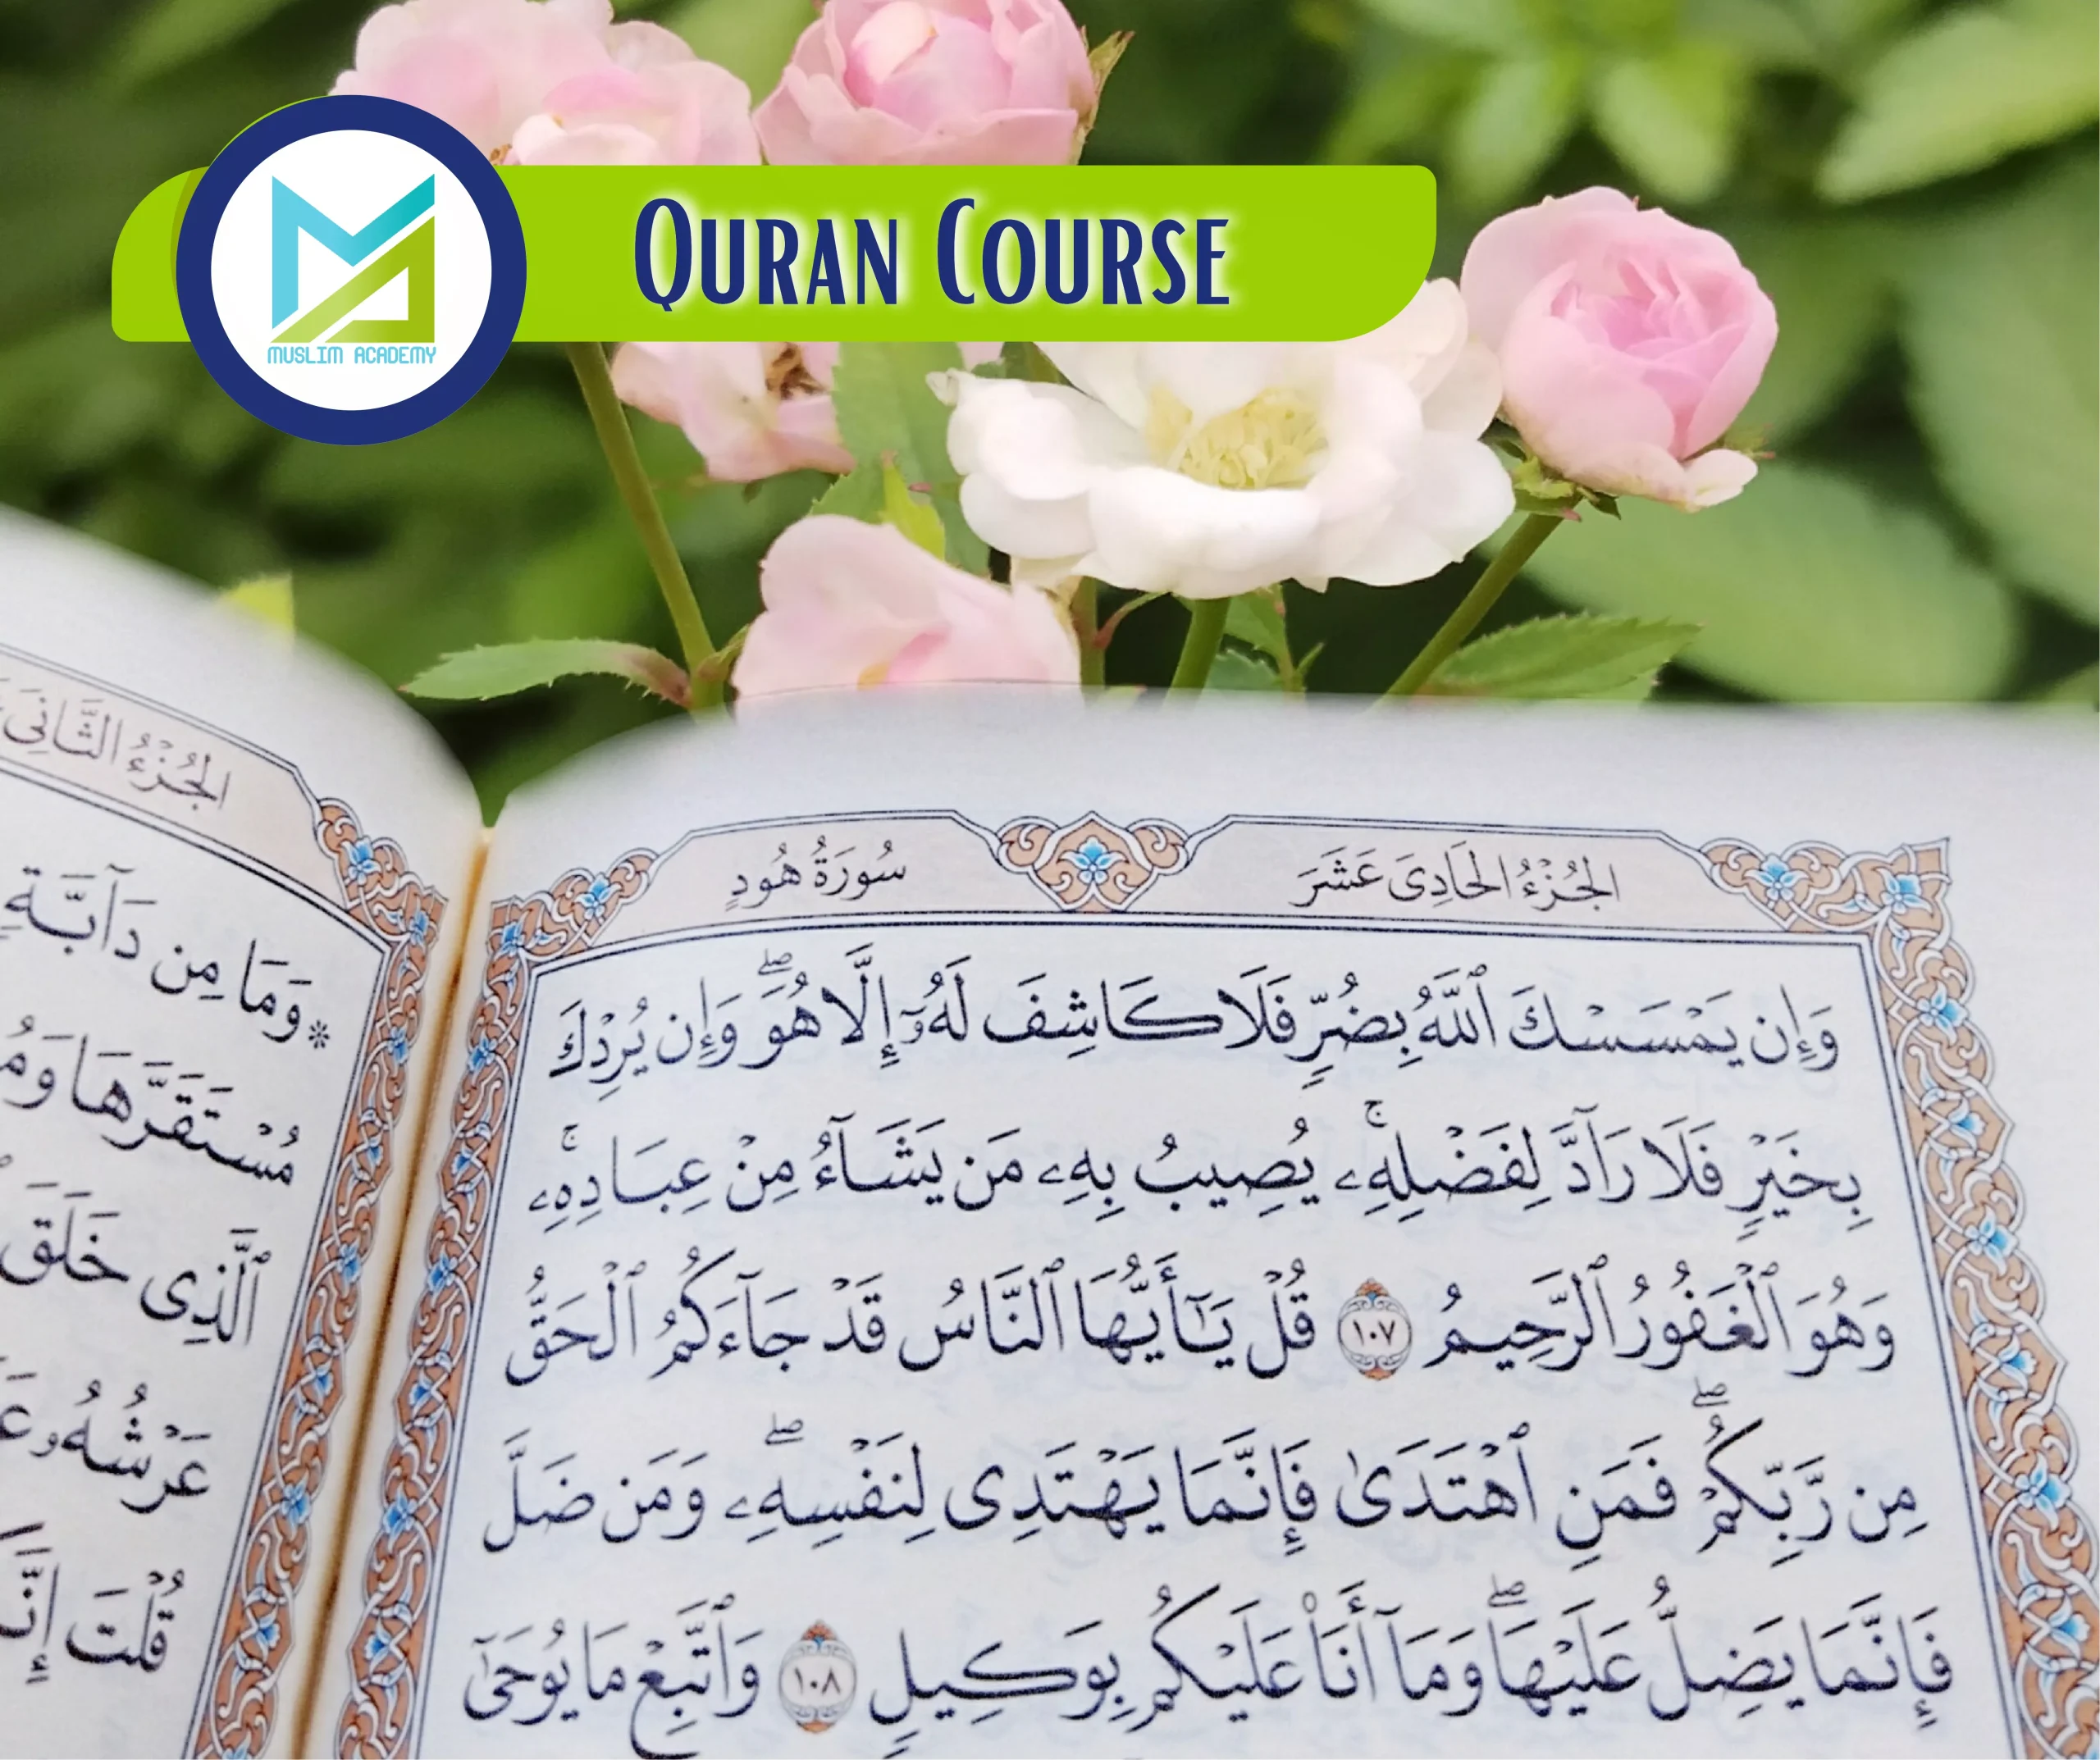 Quran Course
MUSLIM ACADEMY
الجُزْءُ الحَادِىَ عَشَرَ
سُورَةُ هُودٍ
وَإِن يَمْسَسْكَ ٱللَّهُ بِضُرٍّ فَلَا كَاشِفَ لَهُۥٓ إِلَّا هُوَۖ وَإِن يُرِدْكَ
بِخَيْرٍ فَلَا رَآدَّ لِفَضْلِهِۦۚ يُصِيبُ بِهِۦ مَن يَشَآءُ مِنْ عِبَادِهِۦۚ
وَهُوَ ٱلْغَفُورُ ٱلرَّحِيمُ ١٠٧ قُلْ يَـٰٓأَيُّهَا ٱلنَّاسُ قَدْ جَآءَكُمُ ٱلْحَقُّ
مِن رَّبِّكُمْۖ فَمَنِ ٱهْتَدَىٰ فَإِنَّمَا يَهْتَدِى لِنَفْسِهِۦۖ وَمَن ضَلَّ
فَإِنَّمَا يَضِلُّ عَلَيْهَاۖ وَمَآ أَنَا۠ عَلَيْكُم بِوَكِيلٍ ١٠٨ وَٱتَّبِعْ مَا يُوحَىٰٓ
الجُزْءُ الثَّانِىَ
* وَمَا مِن دَآبَّةٍ
مُسْتَقَرَّهَا
ٱلَّذِى خَلَقَ
عَرْشُهُۥ
قُلْتَ